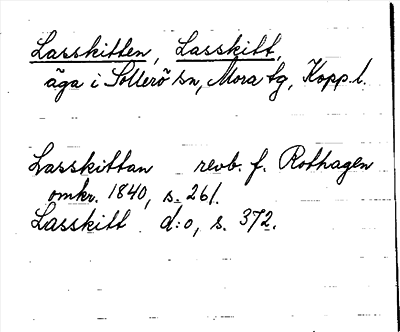 Lasskitten, Lasskitt,
äga i Sollerö sn, Mora tg, Kopp. l.
Lasskittan revb. f. Rothagen
omkr. 1840, s. 261.
Lasskitt d:o, s. 372.